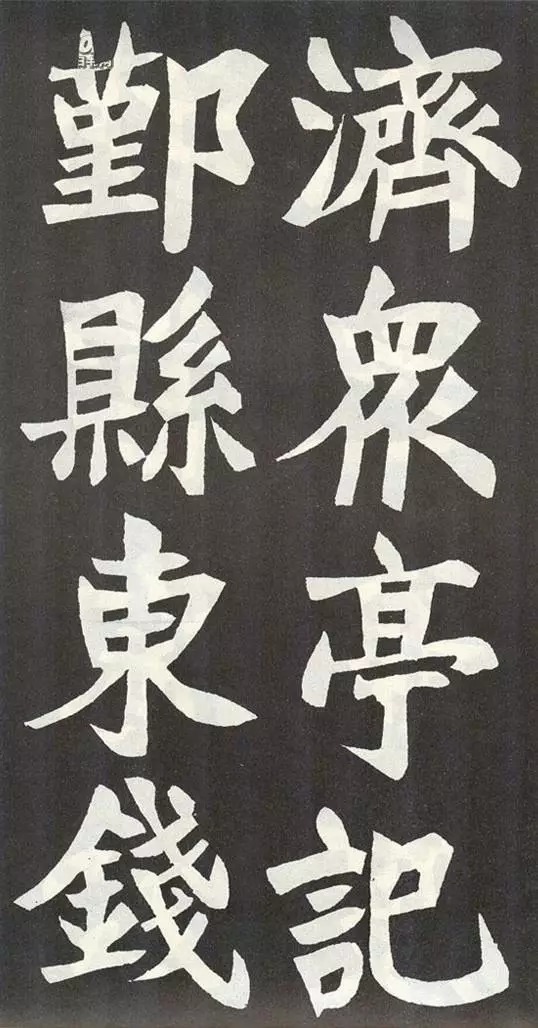 濟眾亭記
鄞縣東錢